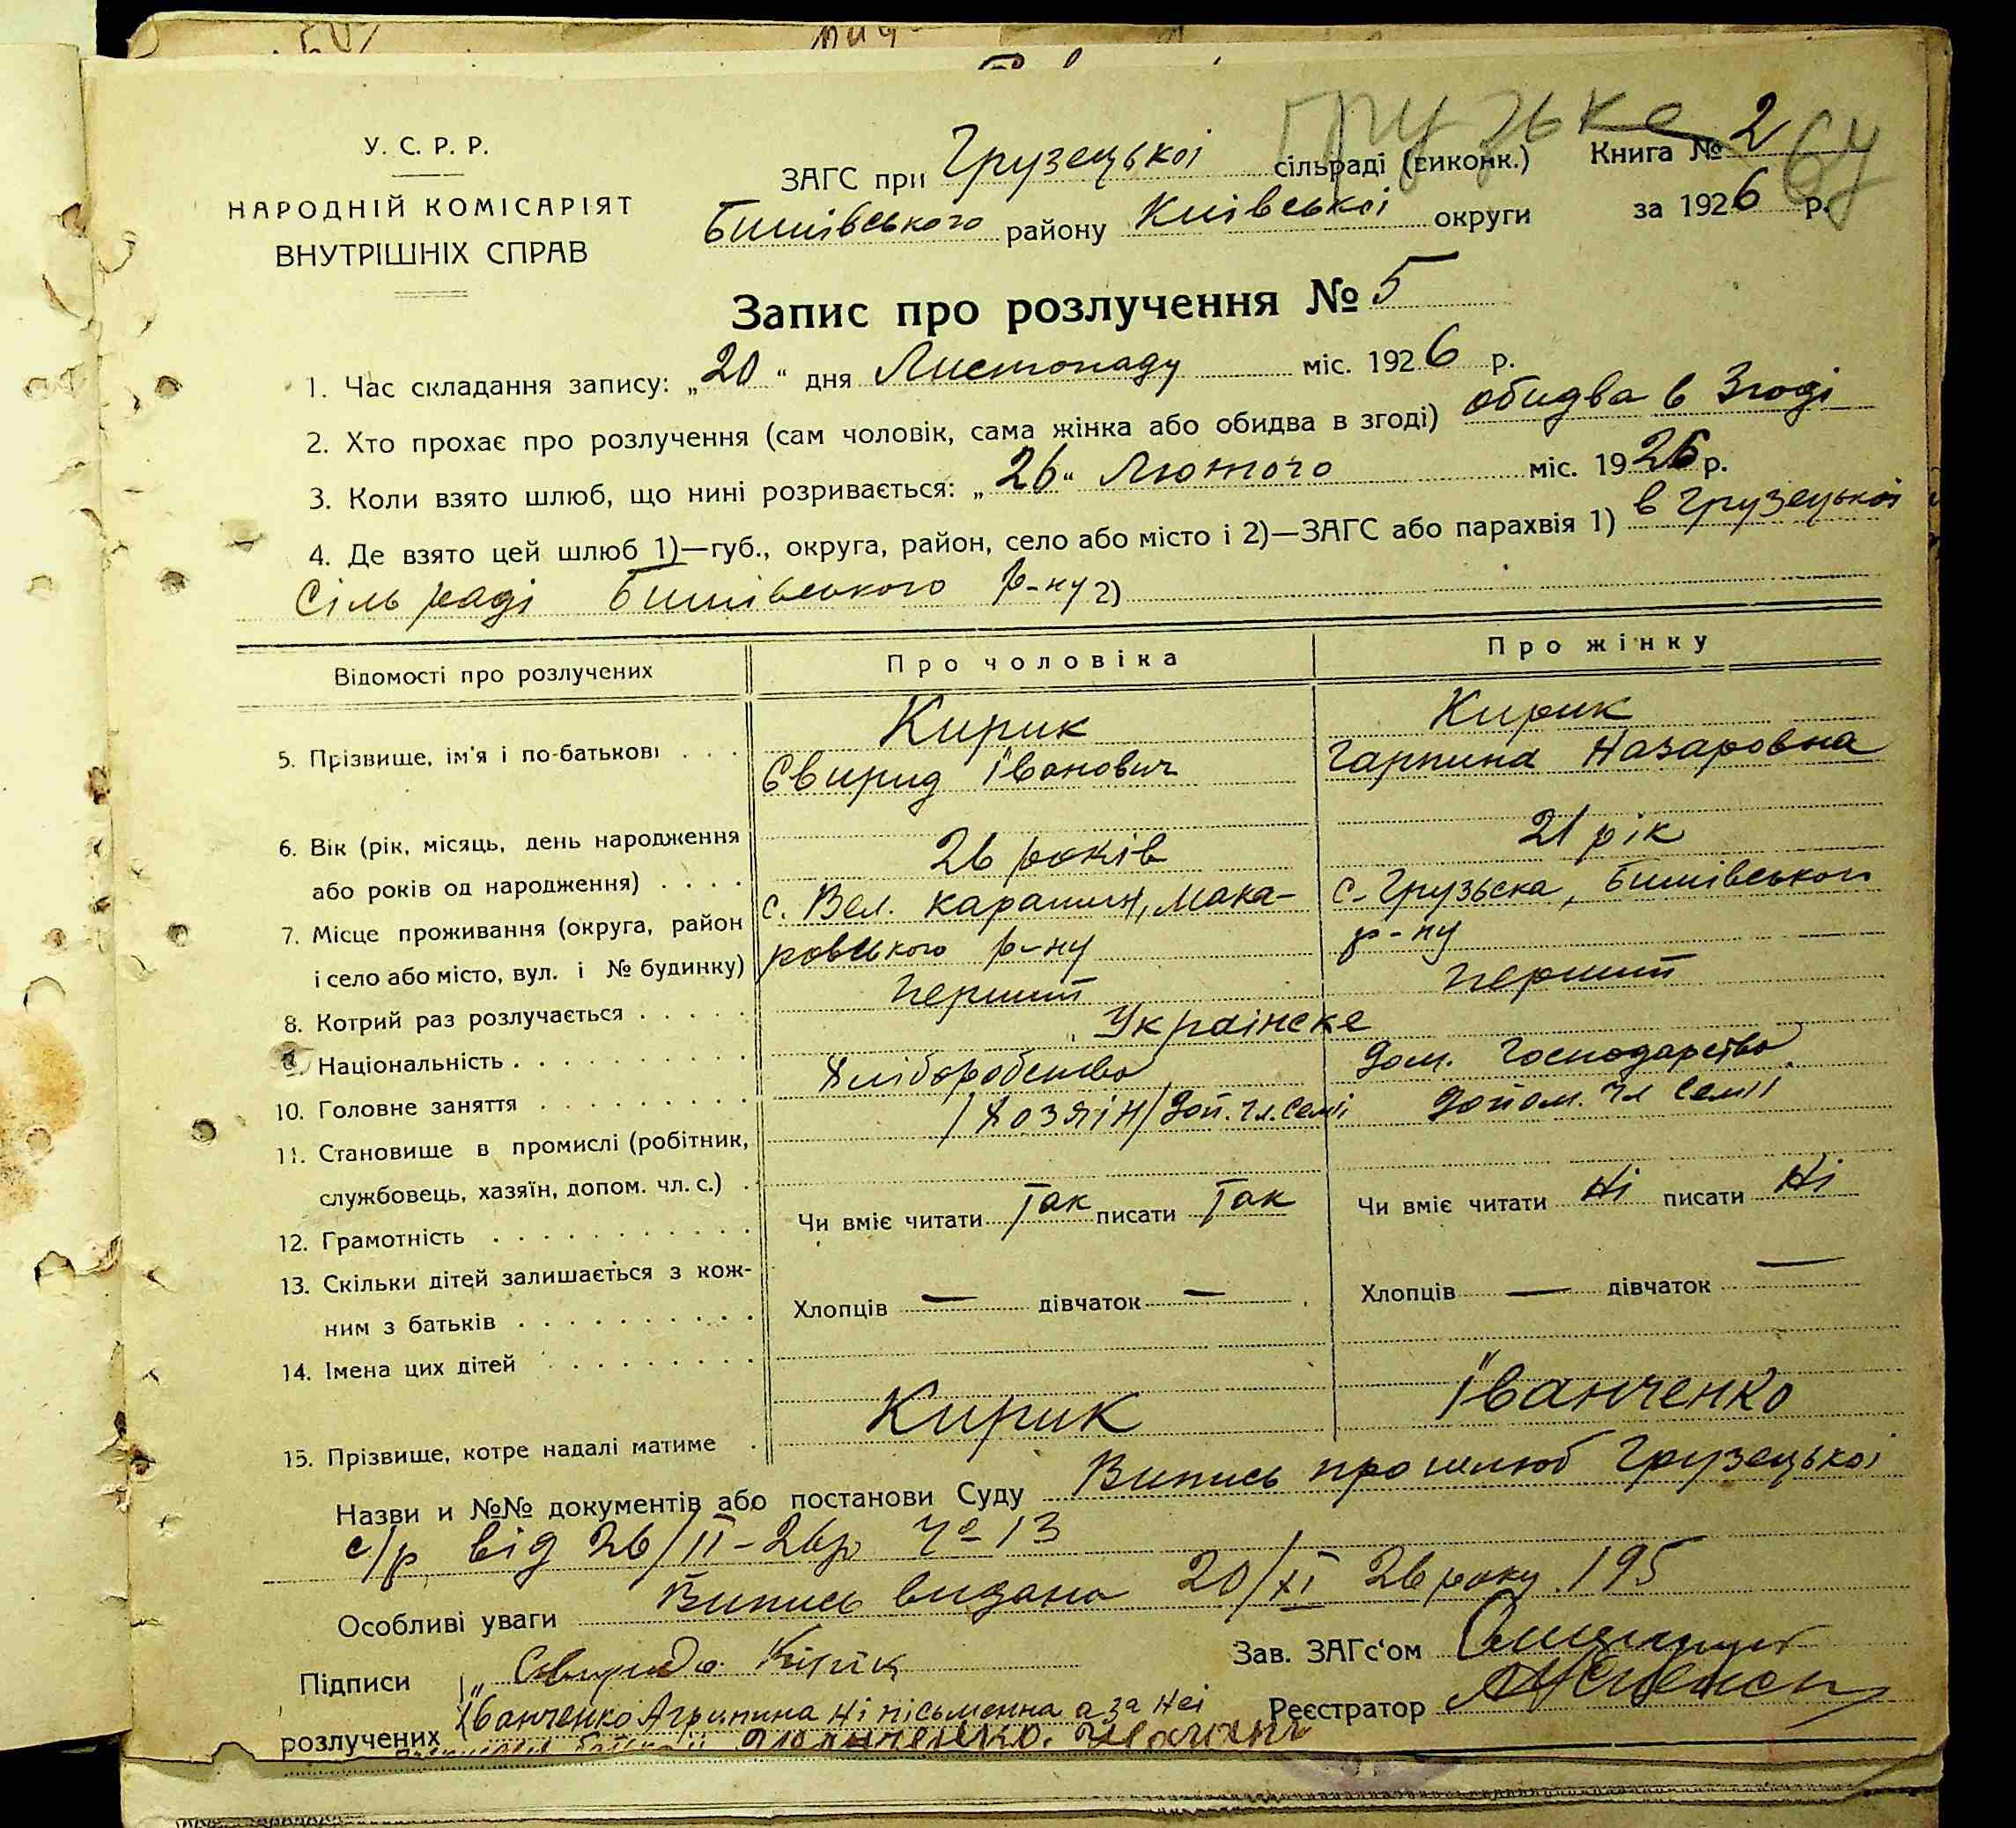 Грузьке
64
У. С. Р. Р.
НАРОДНІЙ КОМІСАРІЯТ
ВНУТРІШНІХ СПРАВ
ЗАГС при Грузецької сільраді (виконк.) Книга № 2
Бишівського району Київської округи за 1926 р.
Запис про розлучення № 5
1. Час складання запису: „20“ дня Листопаду міс. 1926 р.
2. Хто прохає про розлучення (сам чоловік, сама жінка або обидва в згоді) обидва в Згоді
3. Коли взято шлюб, що нині розривається: „26“ Лютого міс. 1926 р.
4. Де взято цей шлюб 1)—губ., округа, район, село або місто і 2)—ЗАГС або парахвія 1) в Грузецької
Сільраді Бишівського р-ну 2)
Відомості про розлучених Про чоловіка Про жінку
5. Прізвище, ім'я і по-батькові . . . Кирик Кирик
Євирид Іванович Гарпина Назаровна
6. Вік (рік, місяць, день народження
або років од народження) . . . . 26 років 21 рік
7. Місце проживання (округа, район с. Вел. Карашин, Мака- с. Грузьска, Бишівського
і село або місто, вул. і № будинку) ровського р-ну р-ну
8. Котрий раз розлучається . . . . . Перший Перший
9. Національність . . . . . . . . . . Українске
10. Головне заняття . . . . . . . . . Хліборобство Дом. Господарство
11. Становище в промислі (робітник, /Хозяін/ Доп. чл. семї Допом. чл семії
службовець, хазяїн, допом. чл. с.) .
12. Грамотність . . . . . . . . . . . Чи вміє читати Так писати Так Чи вміє читати Ні писати Ні
13. Скільки дітей залишається з кож-
ним з батьків . . . . . . . . . . Хлопців — дівчаток — Хлопців — дівчаток —
14. Імена цих дітей . . . . . . . . .
15. Прізвище, котре надалі матиме . Кирик Іванченко
Назви и №№ документів або постанови Суду Випись про шлюб Грузецької
с/р від 26/II-26р № 13
Особливі уваги Випись видана 20/XI 26 року 195
Підписи Свирид Кірік Зав. ЗАГс'ом
розлучених Іванченко Агрипина Ні пісьменна а за неї Реєстратор
Іванченко